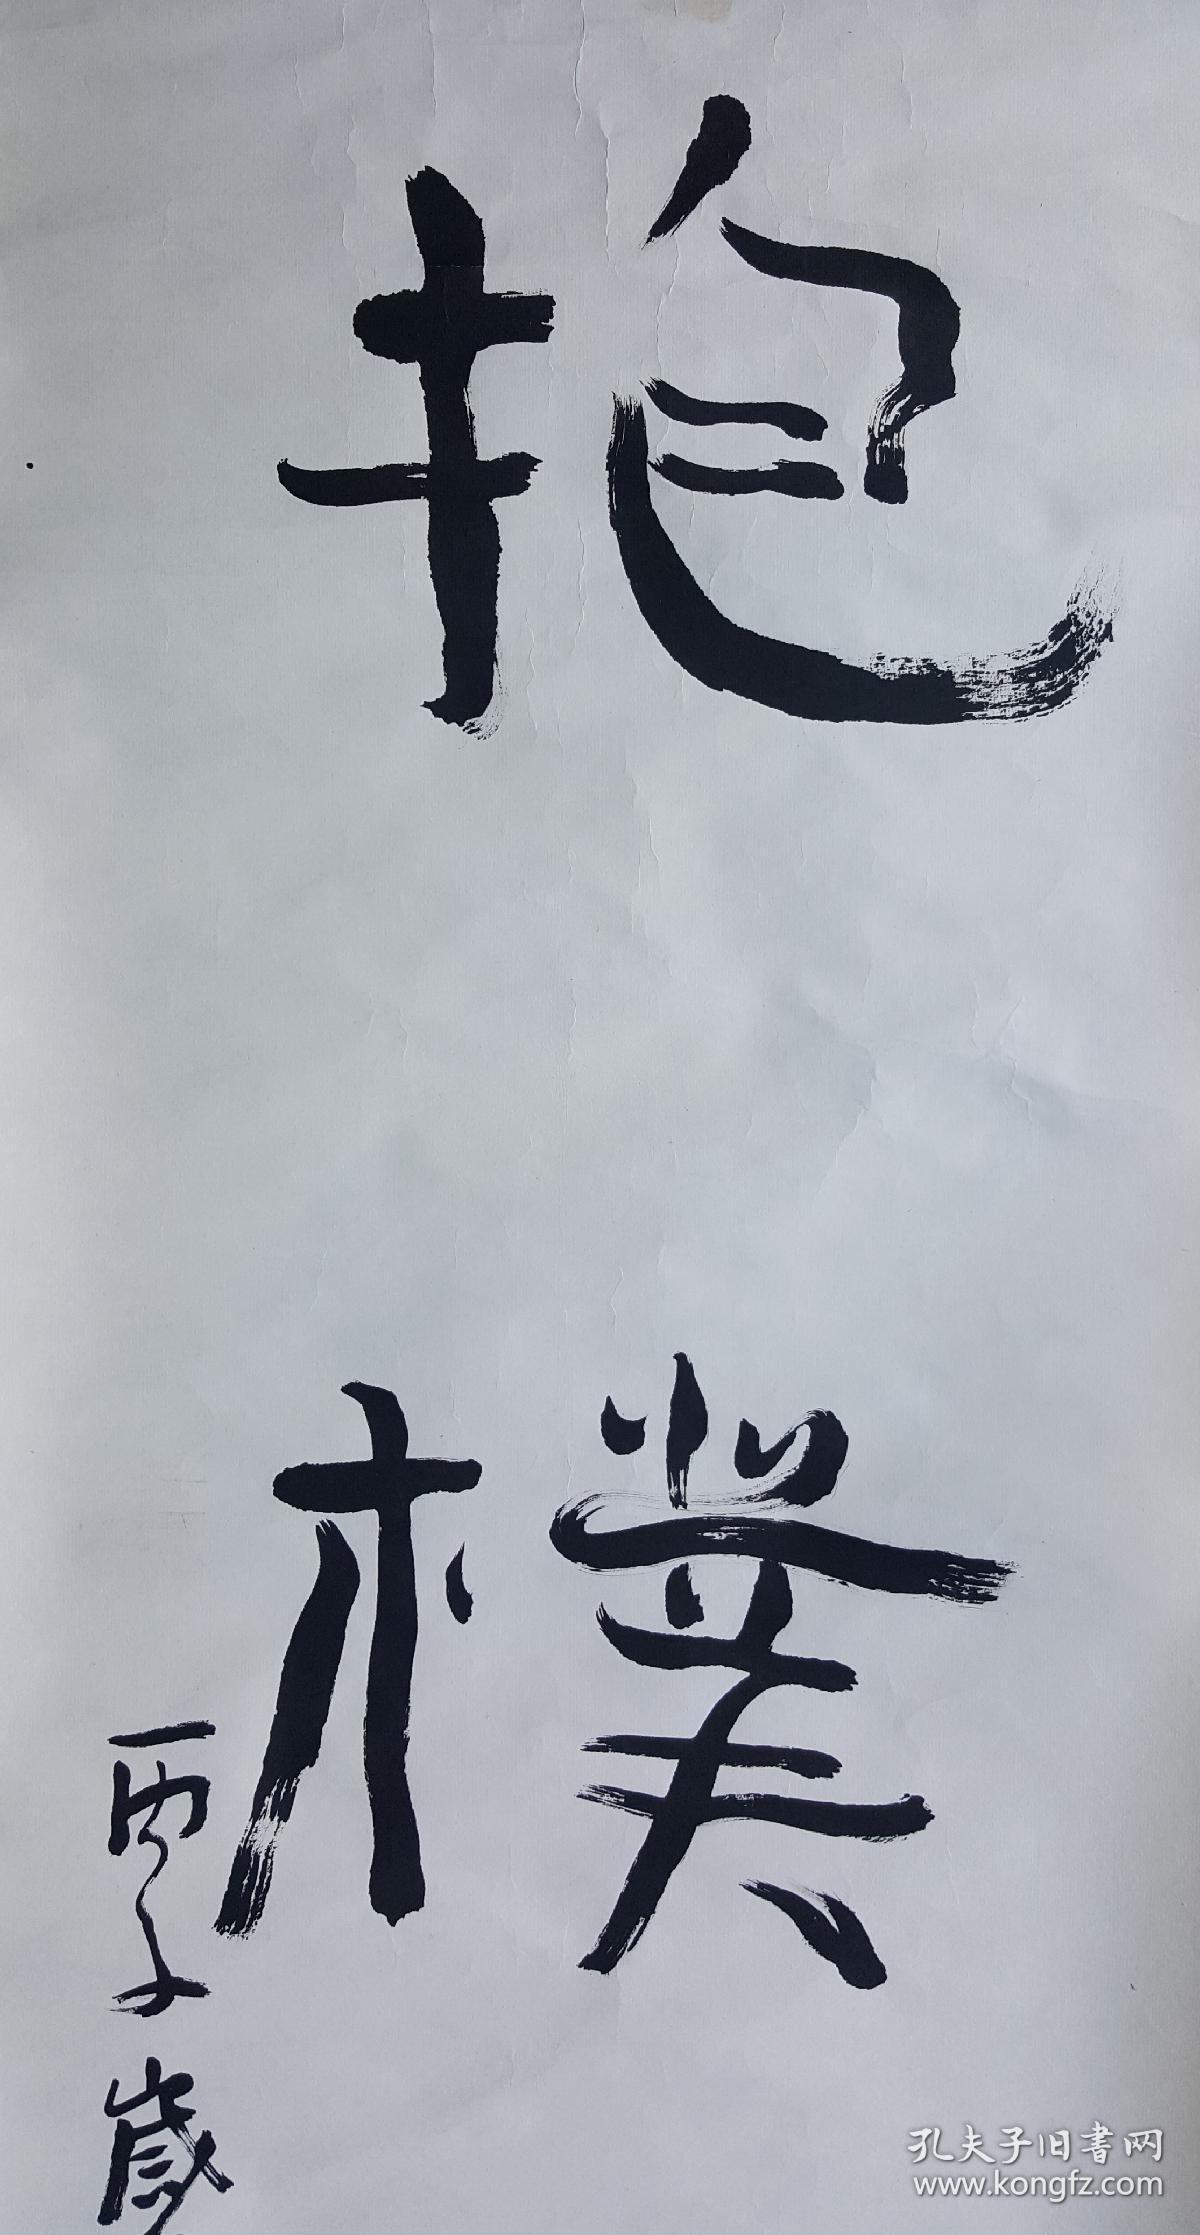 抱樸
丙子歲
孔夫子旧書网
www.kongfz.com